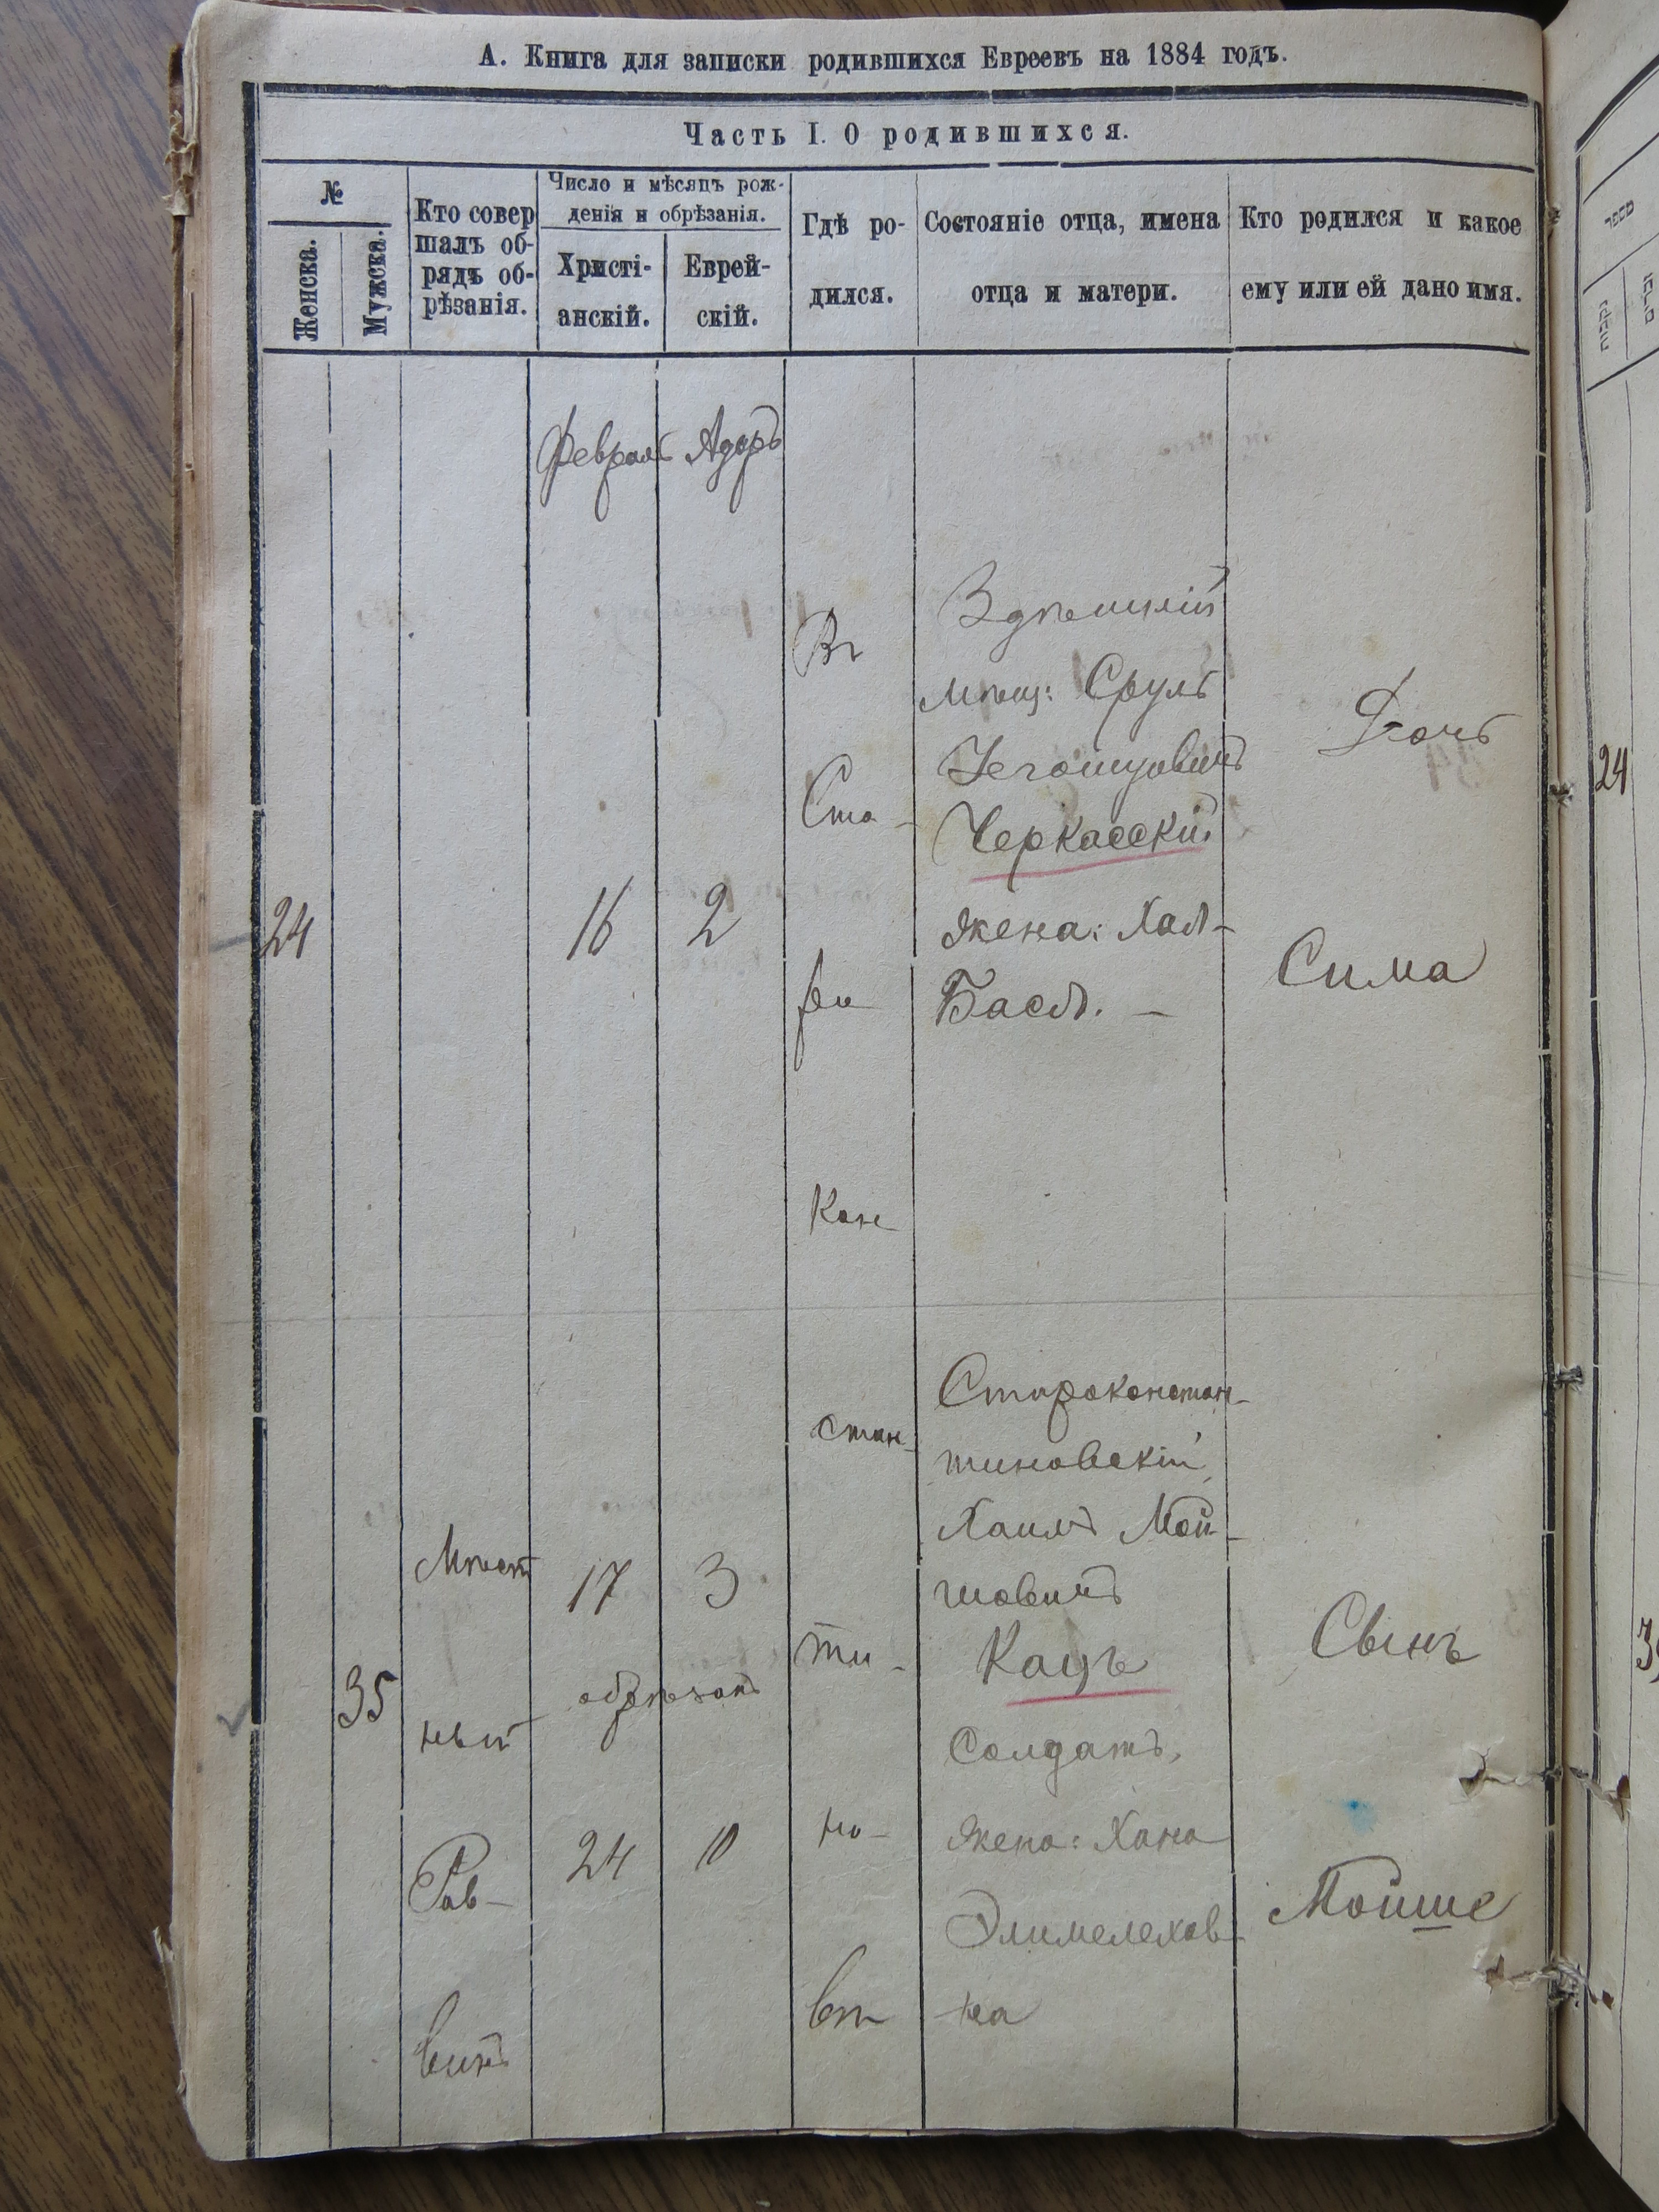 А. Книга для записки родившихся Евреевъ на 1884 годъ.
Часть I. О родившихся.
№
Женска.
Мужска.
Кто совер
шалъ об-
рядъ об-
рѣзанія.
Число и мѣсяцъ рож-
денія и обрѣзанія.
Христі-
анскій.
Еврей-
скій.
Гдѣ ро-
дился.
Состояніе отца, имена
отца и матери.
Кто родился и какое
ему или ей дано имя.
Февраль Адаръ
24
16
2
Въ
Ста-
Здѣшній
мѣщ: Сруль
Черкасскій
жена: Хая-
Бася. —
Дочь
Сима
Кон-
стан-
ти-
но-
вѣ
35
Мѣст
ный
Рав-
винъ
17 3
обрѣзанъ
24 10
Староконстан-
тиновскій
Хаимъ Мой-
шовичъ
Кацъ
Солдатъ,
жена: Хана
Элимелехов-
на
Сынъ
Мойше
24